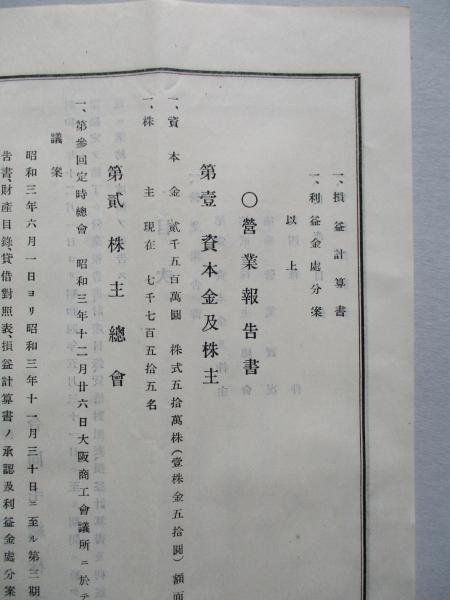 一、損益計算書
一、利益金處分案
以上
〇營業報告書
第壹 資本金及株主
一、資本金 貳千五百萬圓 株式五拾萬株(壹株金五拾圓)額面
一、株主 現在 七千七百五拾五名
第貳 株主總會
一、第參回定時總會 昭和三年十二月廿六日大阪商工會議所ニ於テ
議案
昭和三年六月一日ヨリ昭和三年十一月三十日ニ至ル第三期
告書、財產目錄、貸借對照表、損益計算書ノ承認及利益金處分案